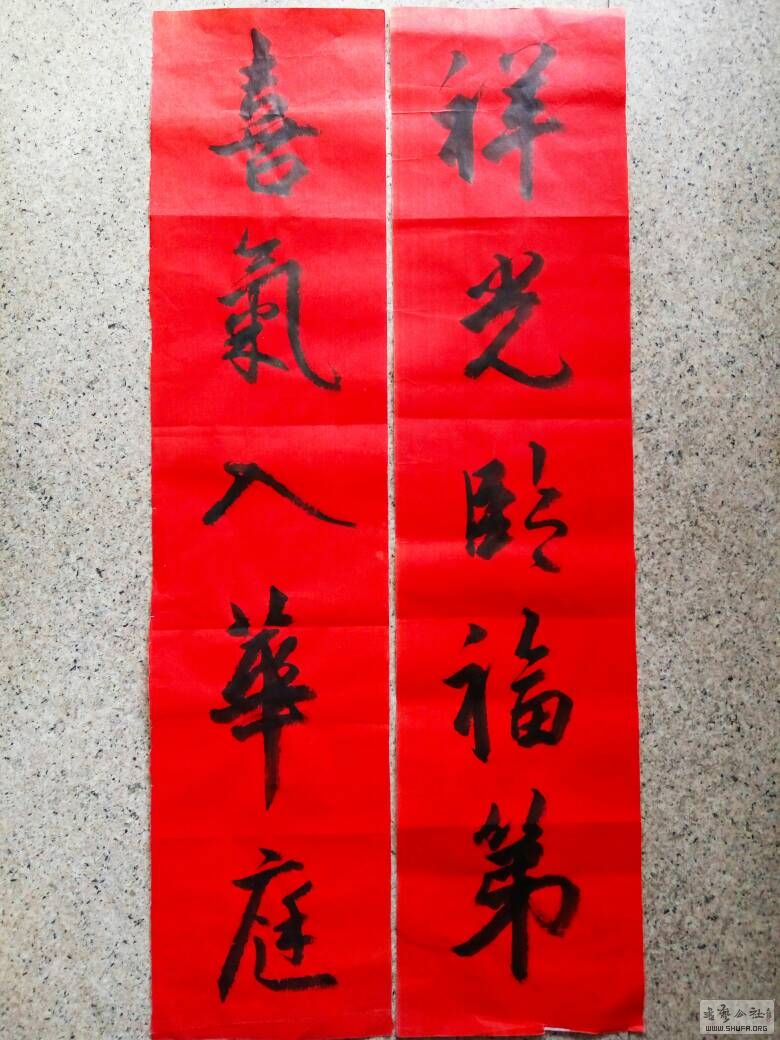 祥光临福第
喜氣入華庭
书艺公社
WWW.SHUFA.ORG